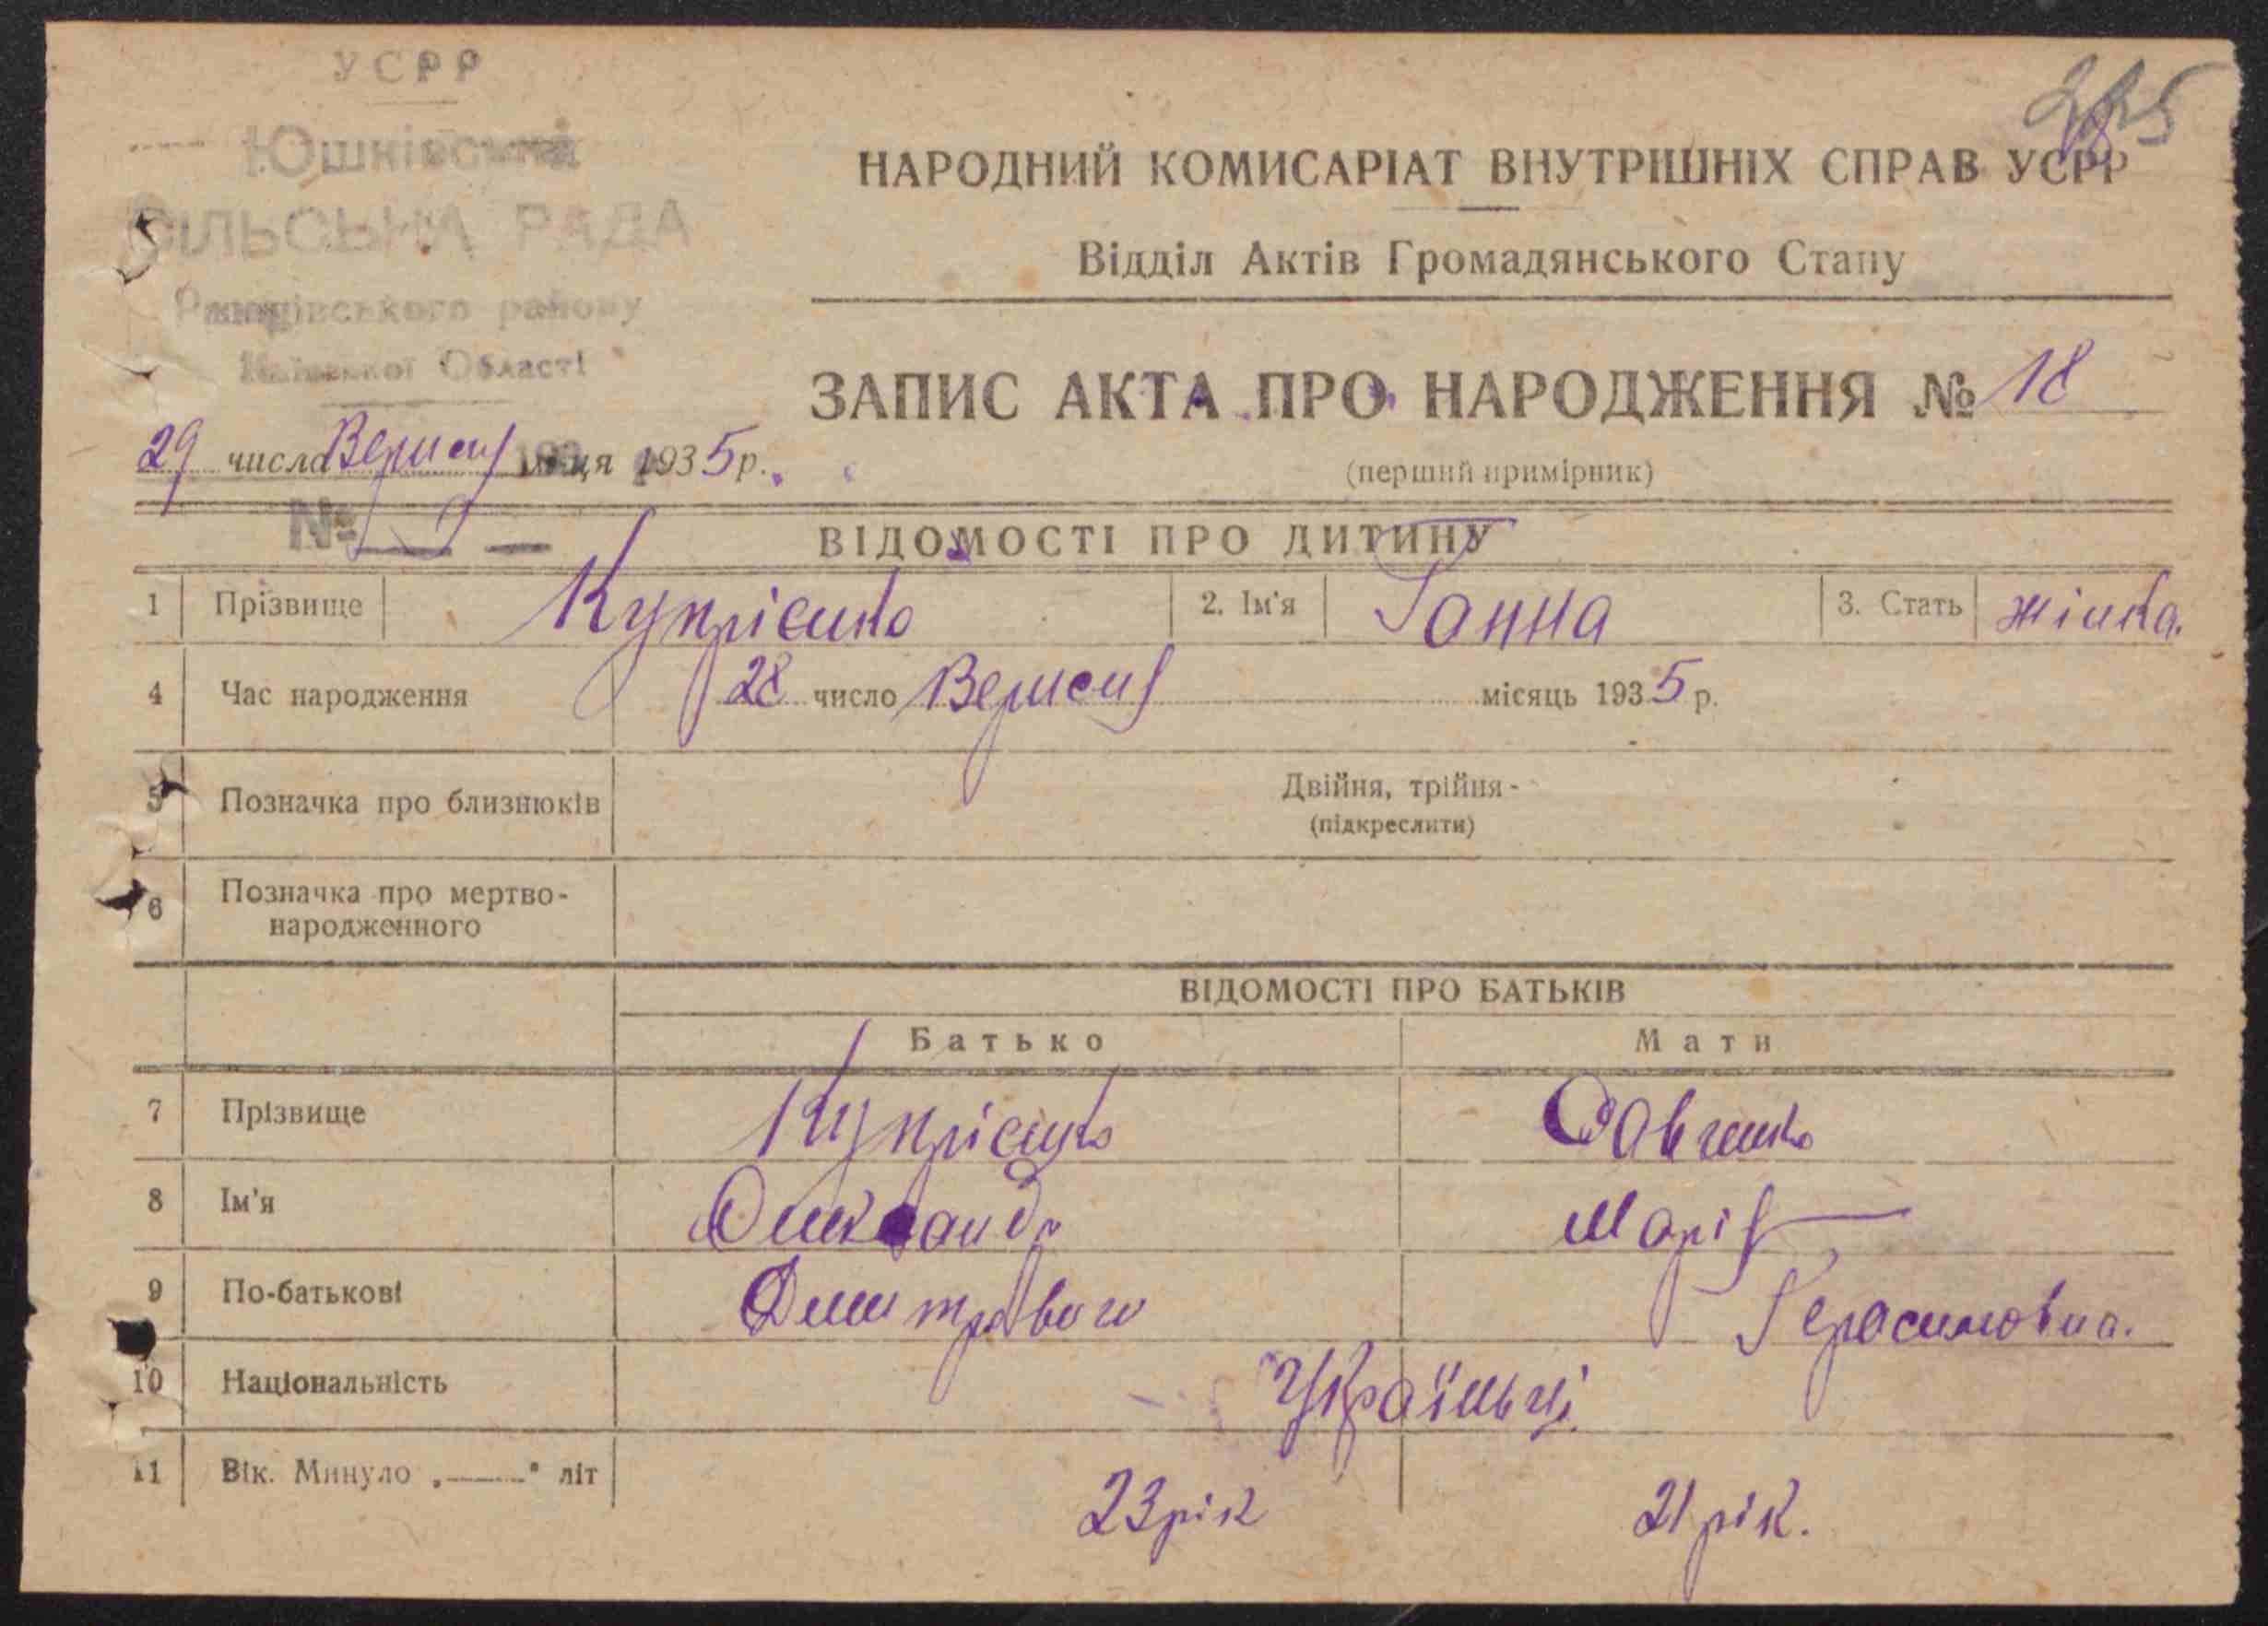 УСРР
Юшківська
СІЛЬСЬКА РАДА
району
Київської Області
29 числа Вересня місяця 1935 р.
№
НАРОДНИЙ КОМИСАРІАТ ВНУТРІШНІХ СПРАВ УСРР
Відділ Актів Громадянського Стану
ЗАПИС АКТА ПРО НАРОДЖЕННЯ № 18
(перший примірник)
ВІДОМОСТІ ПРО ДИТИНУ
1 Прізвище Купрієнко 2. Ім'я Ганна 3. Стать жінка.
4 Час народження 28 число Вересня місяць 1935 р.
5 Позначка про близнюків Двійня, трійня -
(підкреслити)
6 Позначка про мертво-
народженного
ВІДОМОСТІ ПРО БАТЬКІВ
Батько Мати
7 Прізвище Купрієнко Савченко
8 Ім'я Олександр Марія
9 По-батькові Дмитрового Герасимовна.
10 Національність Українці.
11 Вік. Минуло „———" літ 23 рік 21 рік.